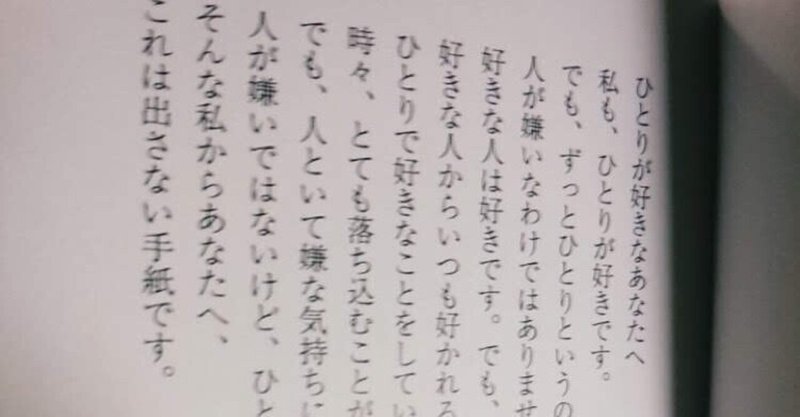 ひとりが好きなあなたへ
私も、ひとりが好きです。
でも、ずっとひとりというの
人が嫌いなわけではありませ
好きな人は好きです。でも、
好きな人からいつも好かれる
ひとりで好きなことをしてい
時々、とても落ち込むことが
でも、人といて嫌な気持ちに
人が嫌いではないけど、ひと
そんな私からあなたへ、
これは出さない手紙です。